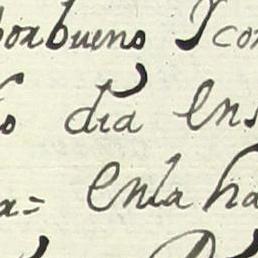 porbueno Y con
dia ens
a= enla ha